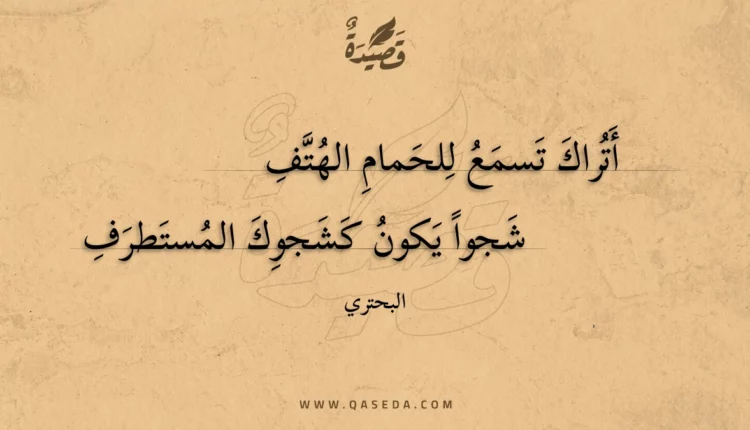 قَصِيْدَةٌ
أَتُراكَ تَسمَعُ لِلحَمامِ الهُتَّفِ
شَجواً يَكونُ كَشَجوِكَ المُستَطرَفِ
البحتري
WWW.QASEDA.COM